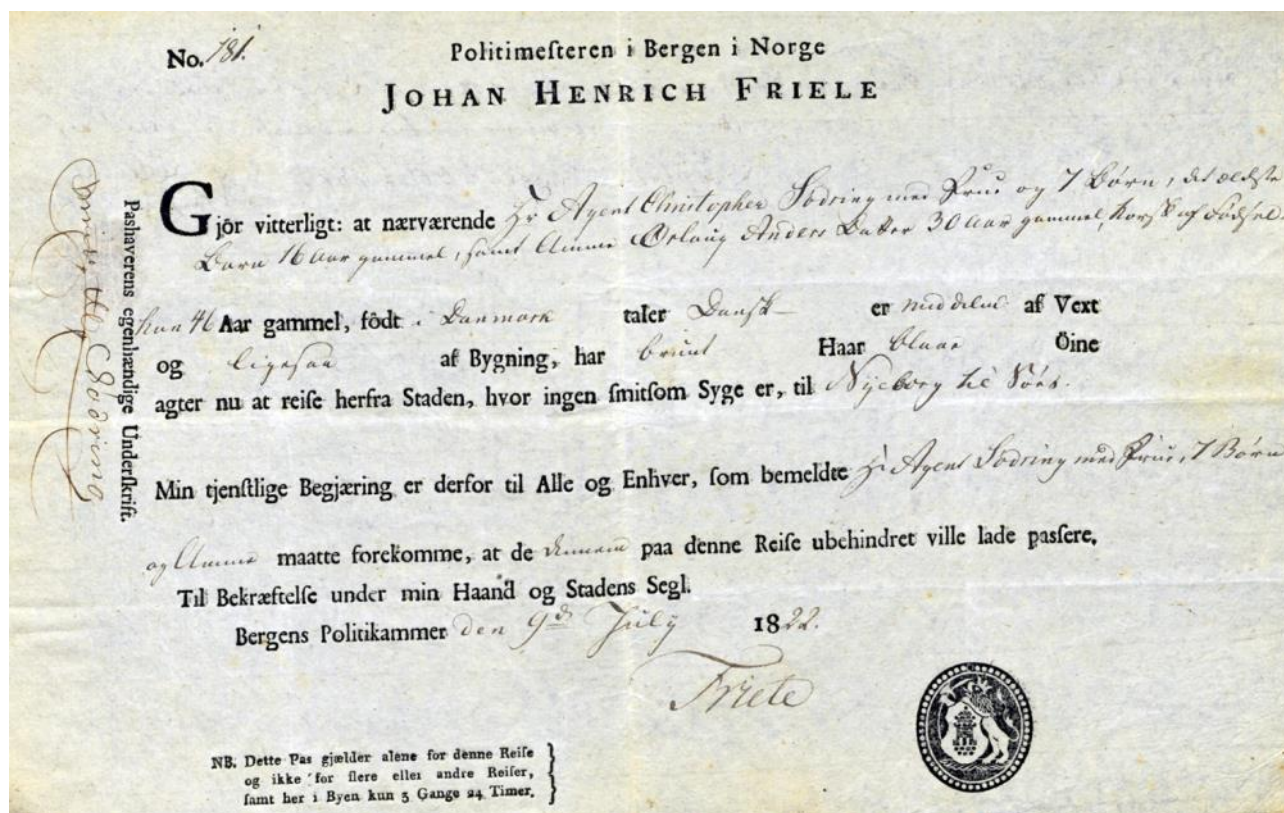 No. 181.
Politimeſteren i Bergen i Norge
JOHAN HENRICH FRIELE
Gjör vitterligt: at nærværende Hr Agent Christopher Södring med Frue og 7 Börn, det ældste
Barn 16 Aar gammel, samt Amme Anders Datter 30 Aar gammel, Norsk af Födsel
han 46 Aar gammel, födt i Danmark taler Dansk er middelm af Vext
og ligesaa af Bygning, har bruunt Haar blaae Öine
agter nu at reiſe herfra Staden, hvor ingen ſmitſom Syge er, til Nyeborg til Söes.
Min tjenſtlige Begjæring er derfor til Alle og Enhver, ſom bemeldte Hr Agent Södring med Frue, 7 Börn
og Amme maatte forekomme, at de dennem paa denne Reiſe ubehindret ville lade paſſere.
Til Bekræftelſe under min Haand og Stadens Segl.
Bergens Politikammer den 9de July 1822.
Friele
NB. Dette Pas gjælder alene for denne Reiſe
og ikke for flere eller andre Reiſer,
ſamt her i Byen kun 5 Gange 24 Timer.
Pashaverens egenhændige Underſkrift.
Södring